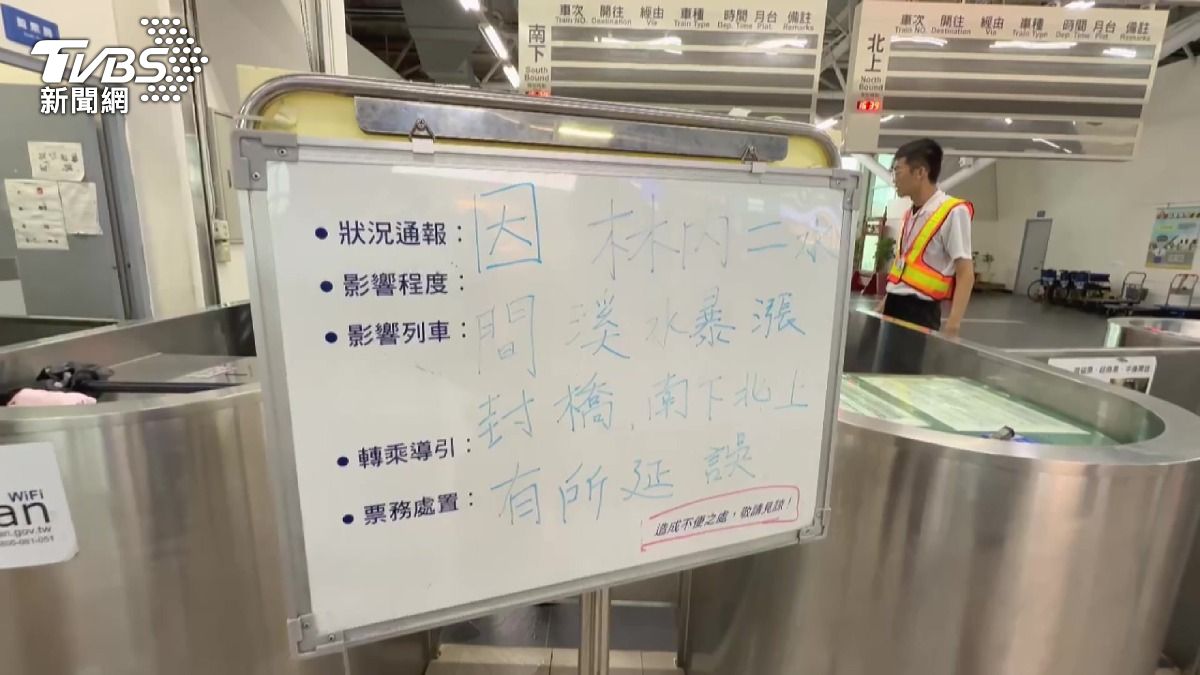 TVBS
新聞網
南下
South Bound
車次 開往 經由 車種 時間 月台 備註
Train NO. Destination Via Train Type Dep. Time Plat. Remarks
北上
North Bound
16:39
車次 開往 經由 車種 時間 月台 備註
Train NO. Destination Via Train Type Dep. Time Plat. Remarks
• 狀況通報：因 林內二水
• 影響程度：
• 影響列車：間 溪水暴漲
封橋,南下北上
• 轉乘導引：
• 票務處置：有所延誤
造成不便之處，敬請見諒！
WiFi
an
an.gov.tw